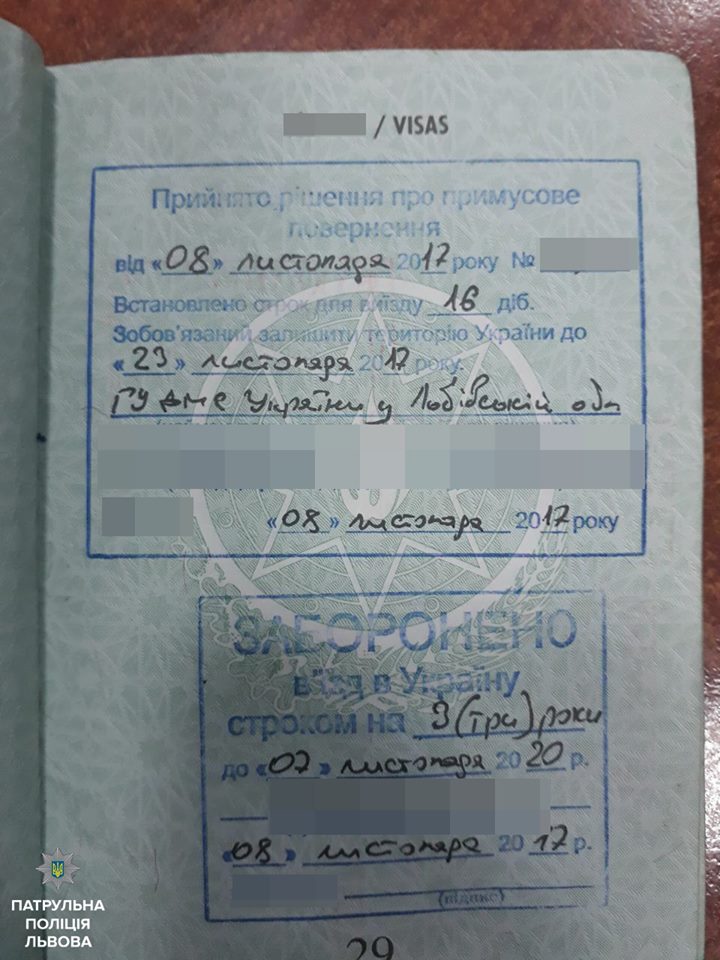 / VISAS
Прийнято рішення про примусове
повернення
від «08» листопада 2017 року №
Встановлено строк для виїзду 16 діб.
Зобов'язаний залишити територію України до
«23» листопада 2017 року.
ГУ ДМС України у Львівській обл
«08» листопада 2017 року
ЗАБОРОНЕНО
в'їзд в Україну
строком на 3 (три) роки
до «07» листопада 2020 р.
«08» листопада 2017 р.
(підпис)
29
ПАТРУЛЬНА
ПОЛІЦІЯ
ЛЬВОВА